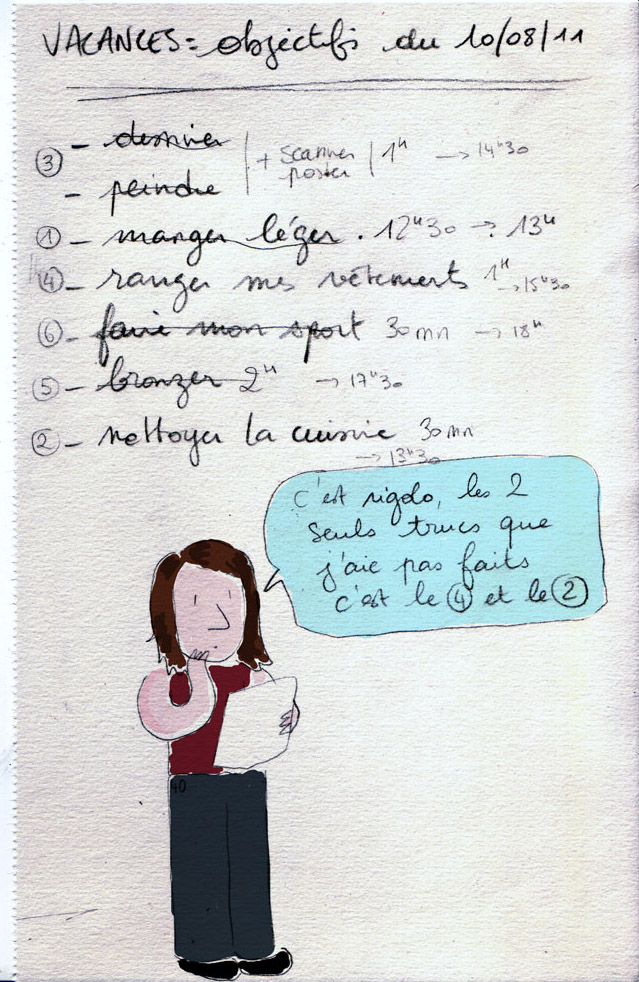 VACANCES = objectifs du 10/08/11
③ - dessiner
- peindre
+ scanner poster
1H → 14H30
① - manger léger . 12H30 → 13H
④ - ranger mes vêtements 1H → 15H30
⑥ - faire mon sport 30mn → 18H
⑤ - bronzer 2H → 17H30
② - nettoyer la cuisine 30mn
→ 13H30
c'est rigolo, les 2
seuls trucs que
j'aie pas faits
c'est le ④ et le ②
40